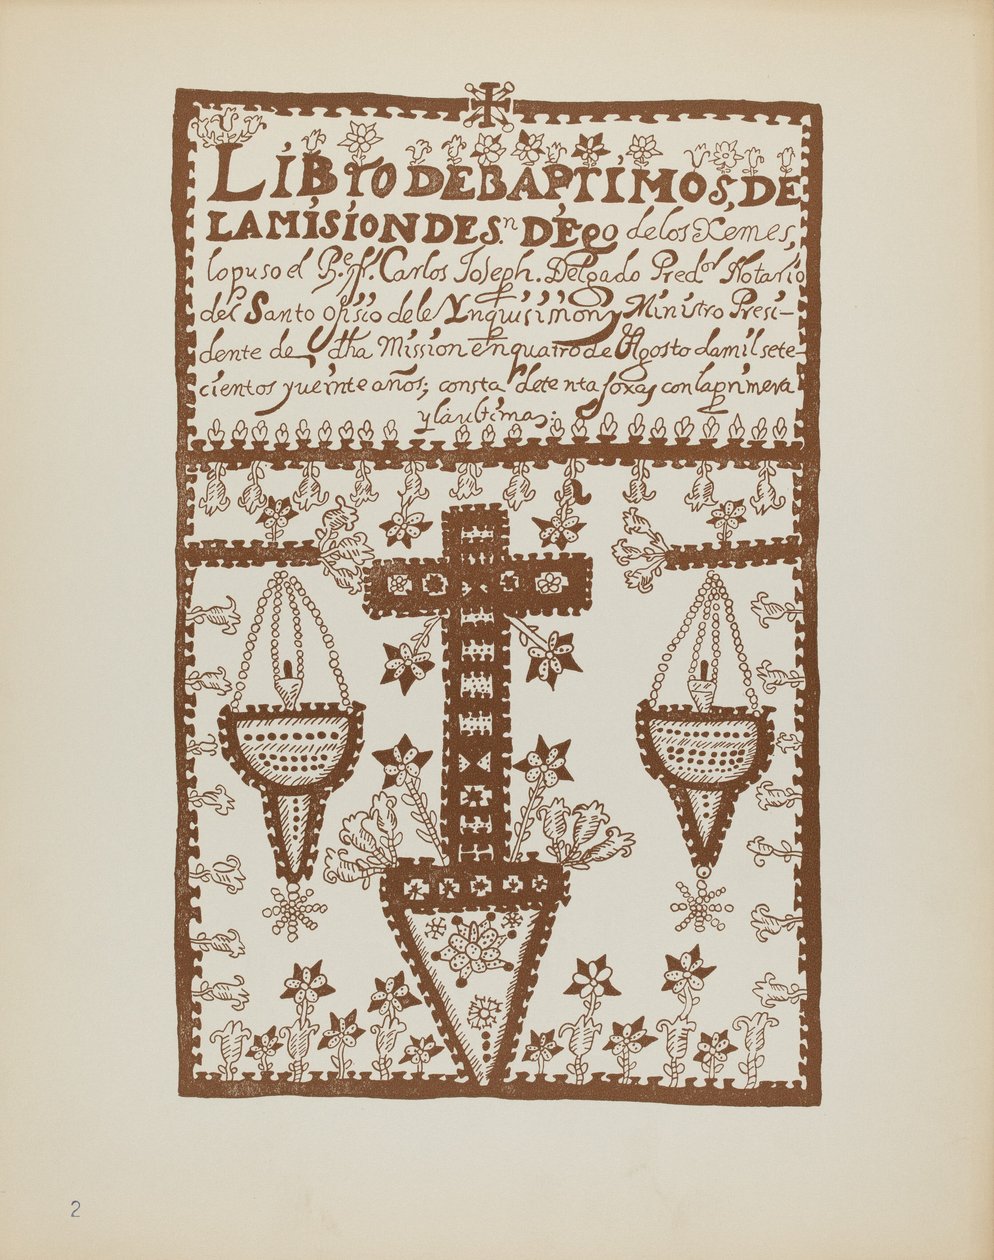 LIBrO DEBAPTIMOS, DE
LAMISIONDES.n DIEgo delos Xemes,
lopuso el R.e Pf. Carlos Joseph. Delgado Pred.or Notario
del Santo ofisio dele Ynquisision y Ministro Presi-
dente de dha Mission en quatro de Agosto damil sete-
cientos yueinte años; consta detenta foxas conlaprimera
y laultima;
2